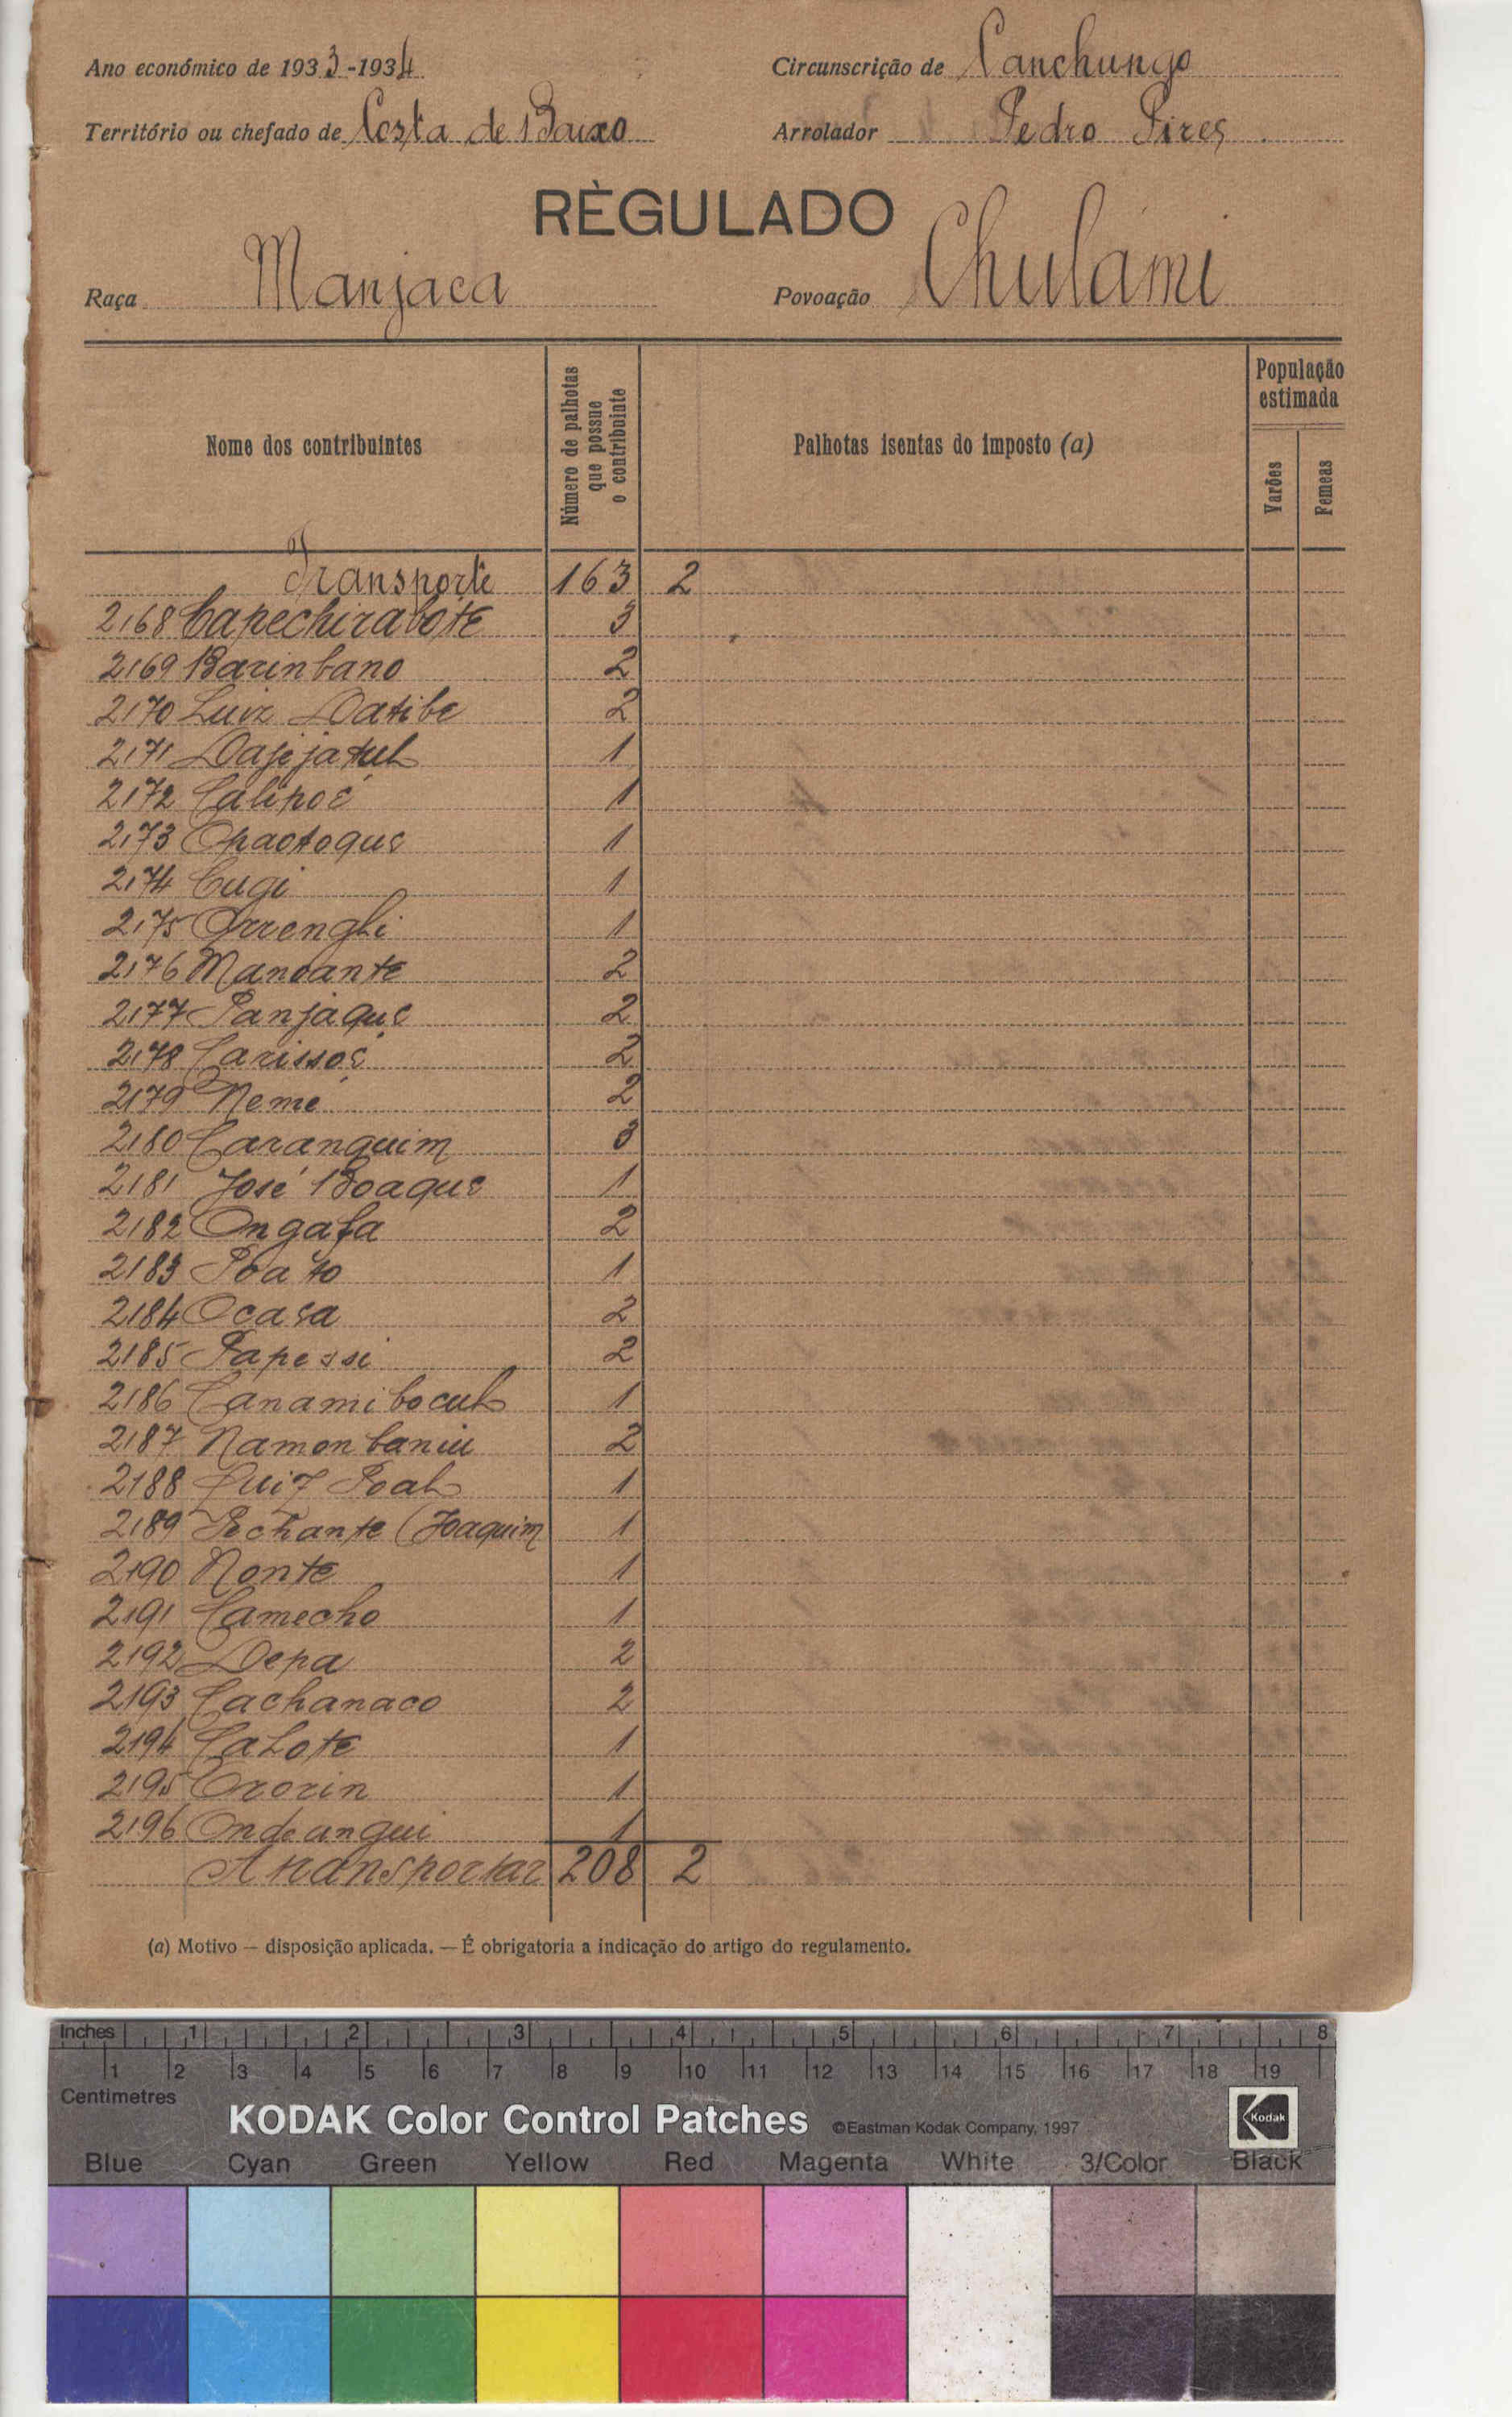 Ano económico de 1933-1934
Circunscrição de Canchungo
Território ou chefado de Costa de Baixo
Arrolador Pedro Pires
RÈGULADO
Raça Manjaca
Povoação Chulâmi
Nome dos contribuintes
Número de palhotas que possue o contribuinte
Palhotas isentas do imposto (a)
População estimada
Varões
Femeas
Transporte 163 2
2168 Capechirabote 3
2169 Barinbano 2
2170 Luiz Datibe 2
2171 Dajejatul 1
2172 Calipoé 1
2173 Opaotoque 1
2174 Cugi 1
2175 Orrengli 1
2176 Manoante 2
2177 Panjaque 2
2178 Carissoé 2
2179 Nemé 2
2180 Caranquim 3
2181 José Boaque 1
2182 Ongafa 2
2183 Poato 1
2184 Ocasa 2
2185 Papessi 2
2186 Canamibocul 1
2187 Namonbaniu 2
2188 Luiz Poal 1
2189 Pechante (Joaquim 1
2190 Nonte 1
2191 Camecho 1
2192 Depa 2
2193 Cachanaco 2
2194 Calote 1
2195 Ororin 1
2196 Ondeangui 1
A transportar 208 2
(a) Motivo — disposição aplicada. — É obrigatoria a indicação do artigo do regulamento.
Inches 1 2 3 4 5 6 7 8
1 2 3 4 5 6 7 8 9 10 11 12 13 14 15 16 17 18 19
Centimetres
KODAK Color Control Patches ©Eastman Kodak Company, 1997 Kodak
Blue Cyan Green Yellow Red Magenta White 3/Color Black